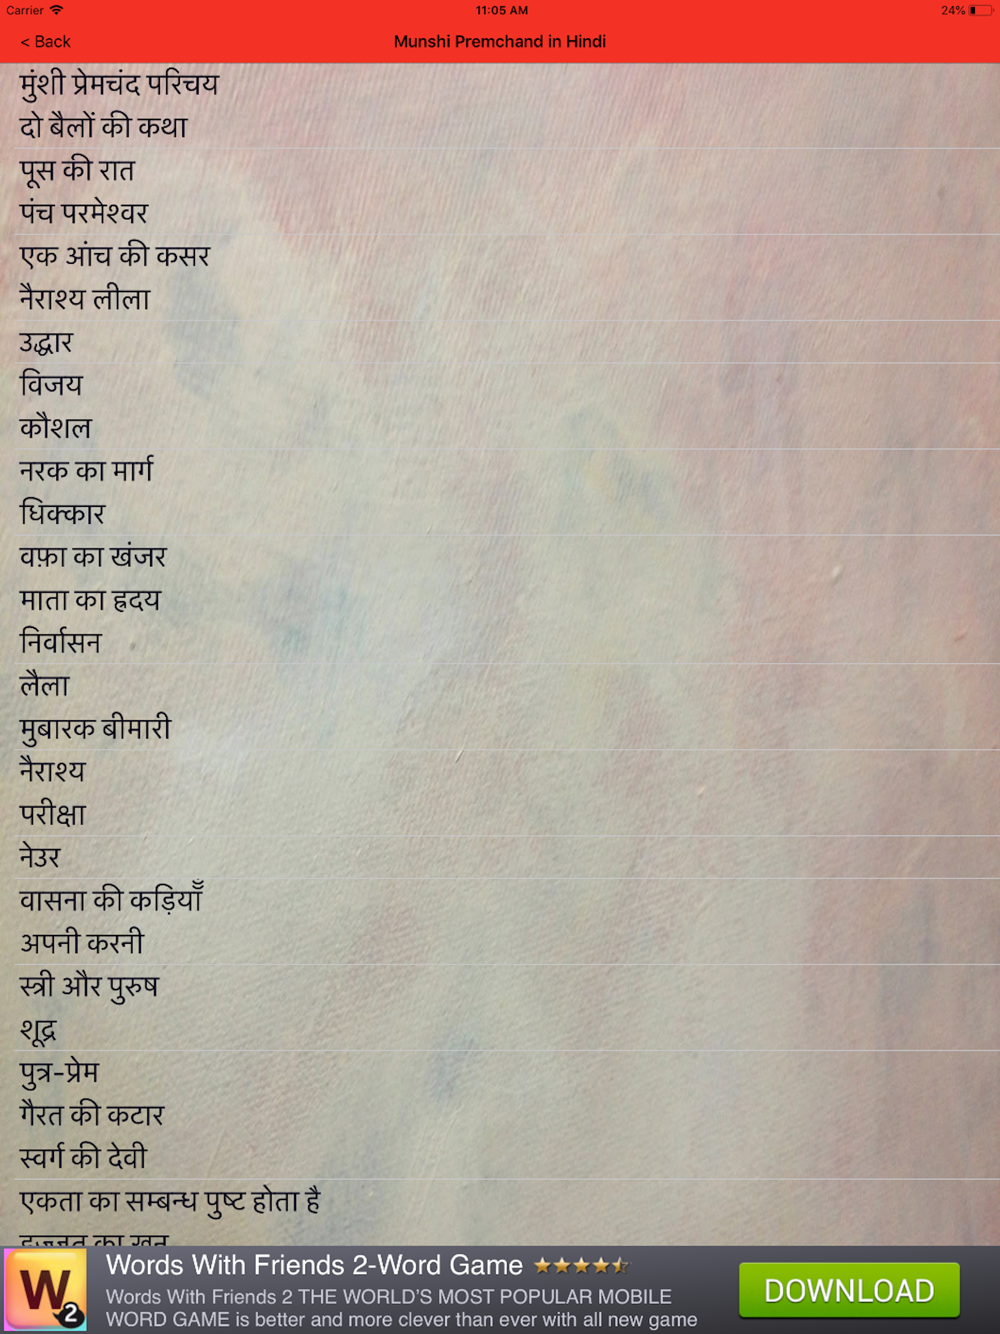 Carrier 11:05 AM 24%
< Back Munshi Premchand in Hindi
मुंशी प्रेमचंद परिचय
दो बैलों की कथा
पूस की रात
पंच परमेश्वर
एक आंच की कसर
नैराश्य लीला
उद्धार
विजय
कौशल
नरक का मार्ग
धिक्कार
वफ़ा का खंजर
माता का ह्रदय
निर्वासन
लैला
मुबारक बीमारी
नैराश्य
परीक्षा
नेउर
वासना की कड़ियाँँ
अपनी करनी
स्त्री और पुरुष
शूद्र
पुत्र-प्रेम
गैरत की कटार
स्वर्ग की देवी
एकता का सम्बन्ध पुष्ट होता है
Words With Friends 2-Word Game
Words With Friends 2 THE WORLD'S MOST POPULAR MOBILE
WORD GAME is better and more clever than ever with all new game
DOWNLOAD
W2